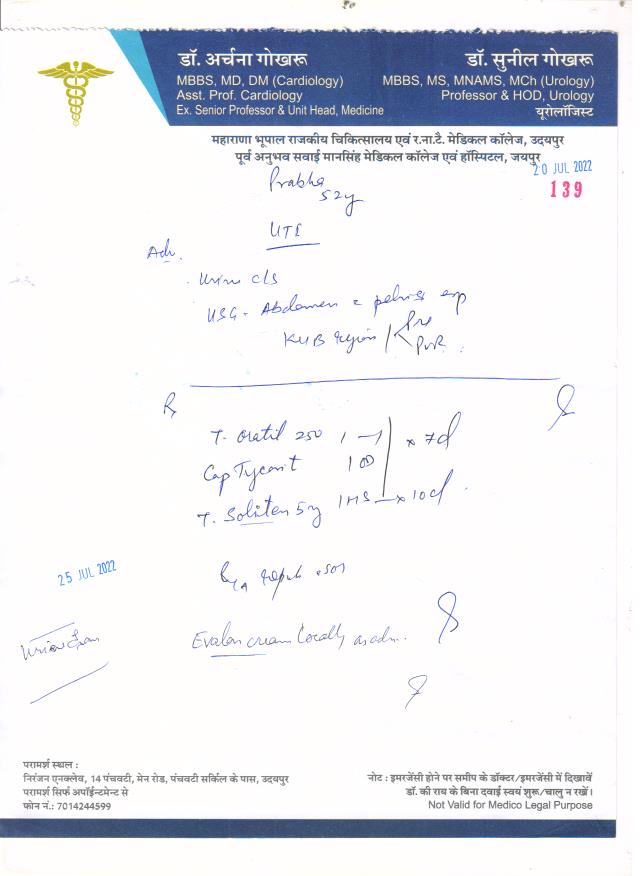 डॉ. अर्चना गोखरू
MBBS, MD, DM (Cardiology)
Asst. Prof. Cardiology
Ex. Senior Professor & Unit Head, Medicine
डॉ. सुनील गोखरू
MBBS, MS, MNAMS, MCh (Urology)
Professor & HOD, Urology
यूरोलॉजिस्ट
महाराणा भूपाल राजकीय चिकित्सालय एवं र.ना.टै. मेडिकल कॉलेज, उदयपुर
पूर्व अनुभव सवाई मानसिंह मेडिकल कॉलेज एवं हॉस्पिटल, जयपुर
20 JUL 2022
139
Prabha
52y
UTI
Adv.
Urine c/s
USG - Abdomen c pelvis
KUB region / Pre
PVR
Rx
T. 250 1 - 1 x 7d
Cap 1 OD
T. Soliten 5mg 1 HS x 10d
25 JUL 2022
Evalon cream locally
परामर्श स्थल :
निरंजन एनक्लेव, 14 पंचवटी, मेन रोड, पंचवटी सर्किल के पास, उदयपुर
परामर्श सिर्फ अपॉईन्टमेन्ट से
फोन नं.: 7014244599
नोट : इमरजेंसी होने पर समीप के डॉक्टर/इमरजेंसी में दिखावें
डॉ. की राय के बिना दवाई स्वयं शुरू/चालु न रखें।
Not Valid for Medico Legal Purpose